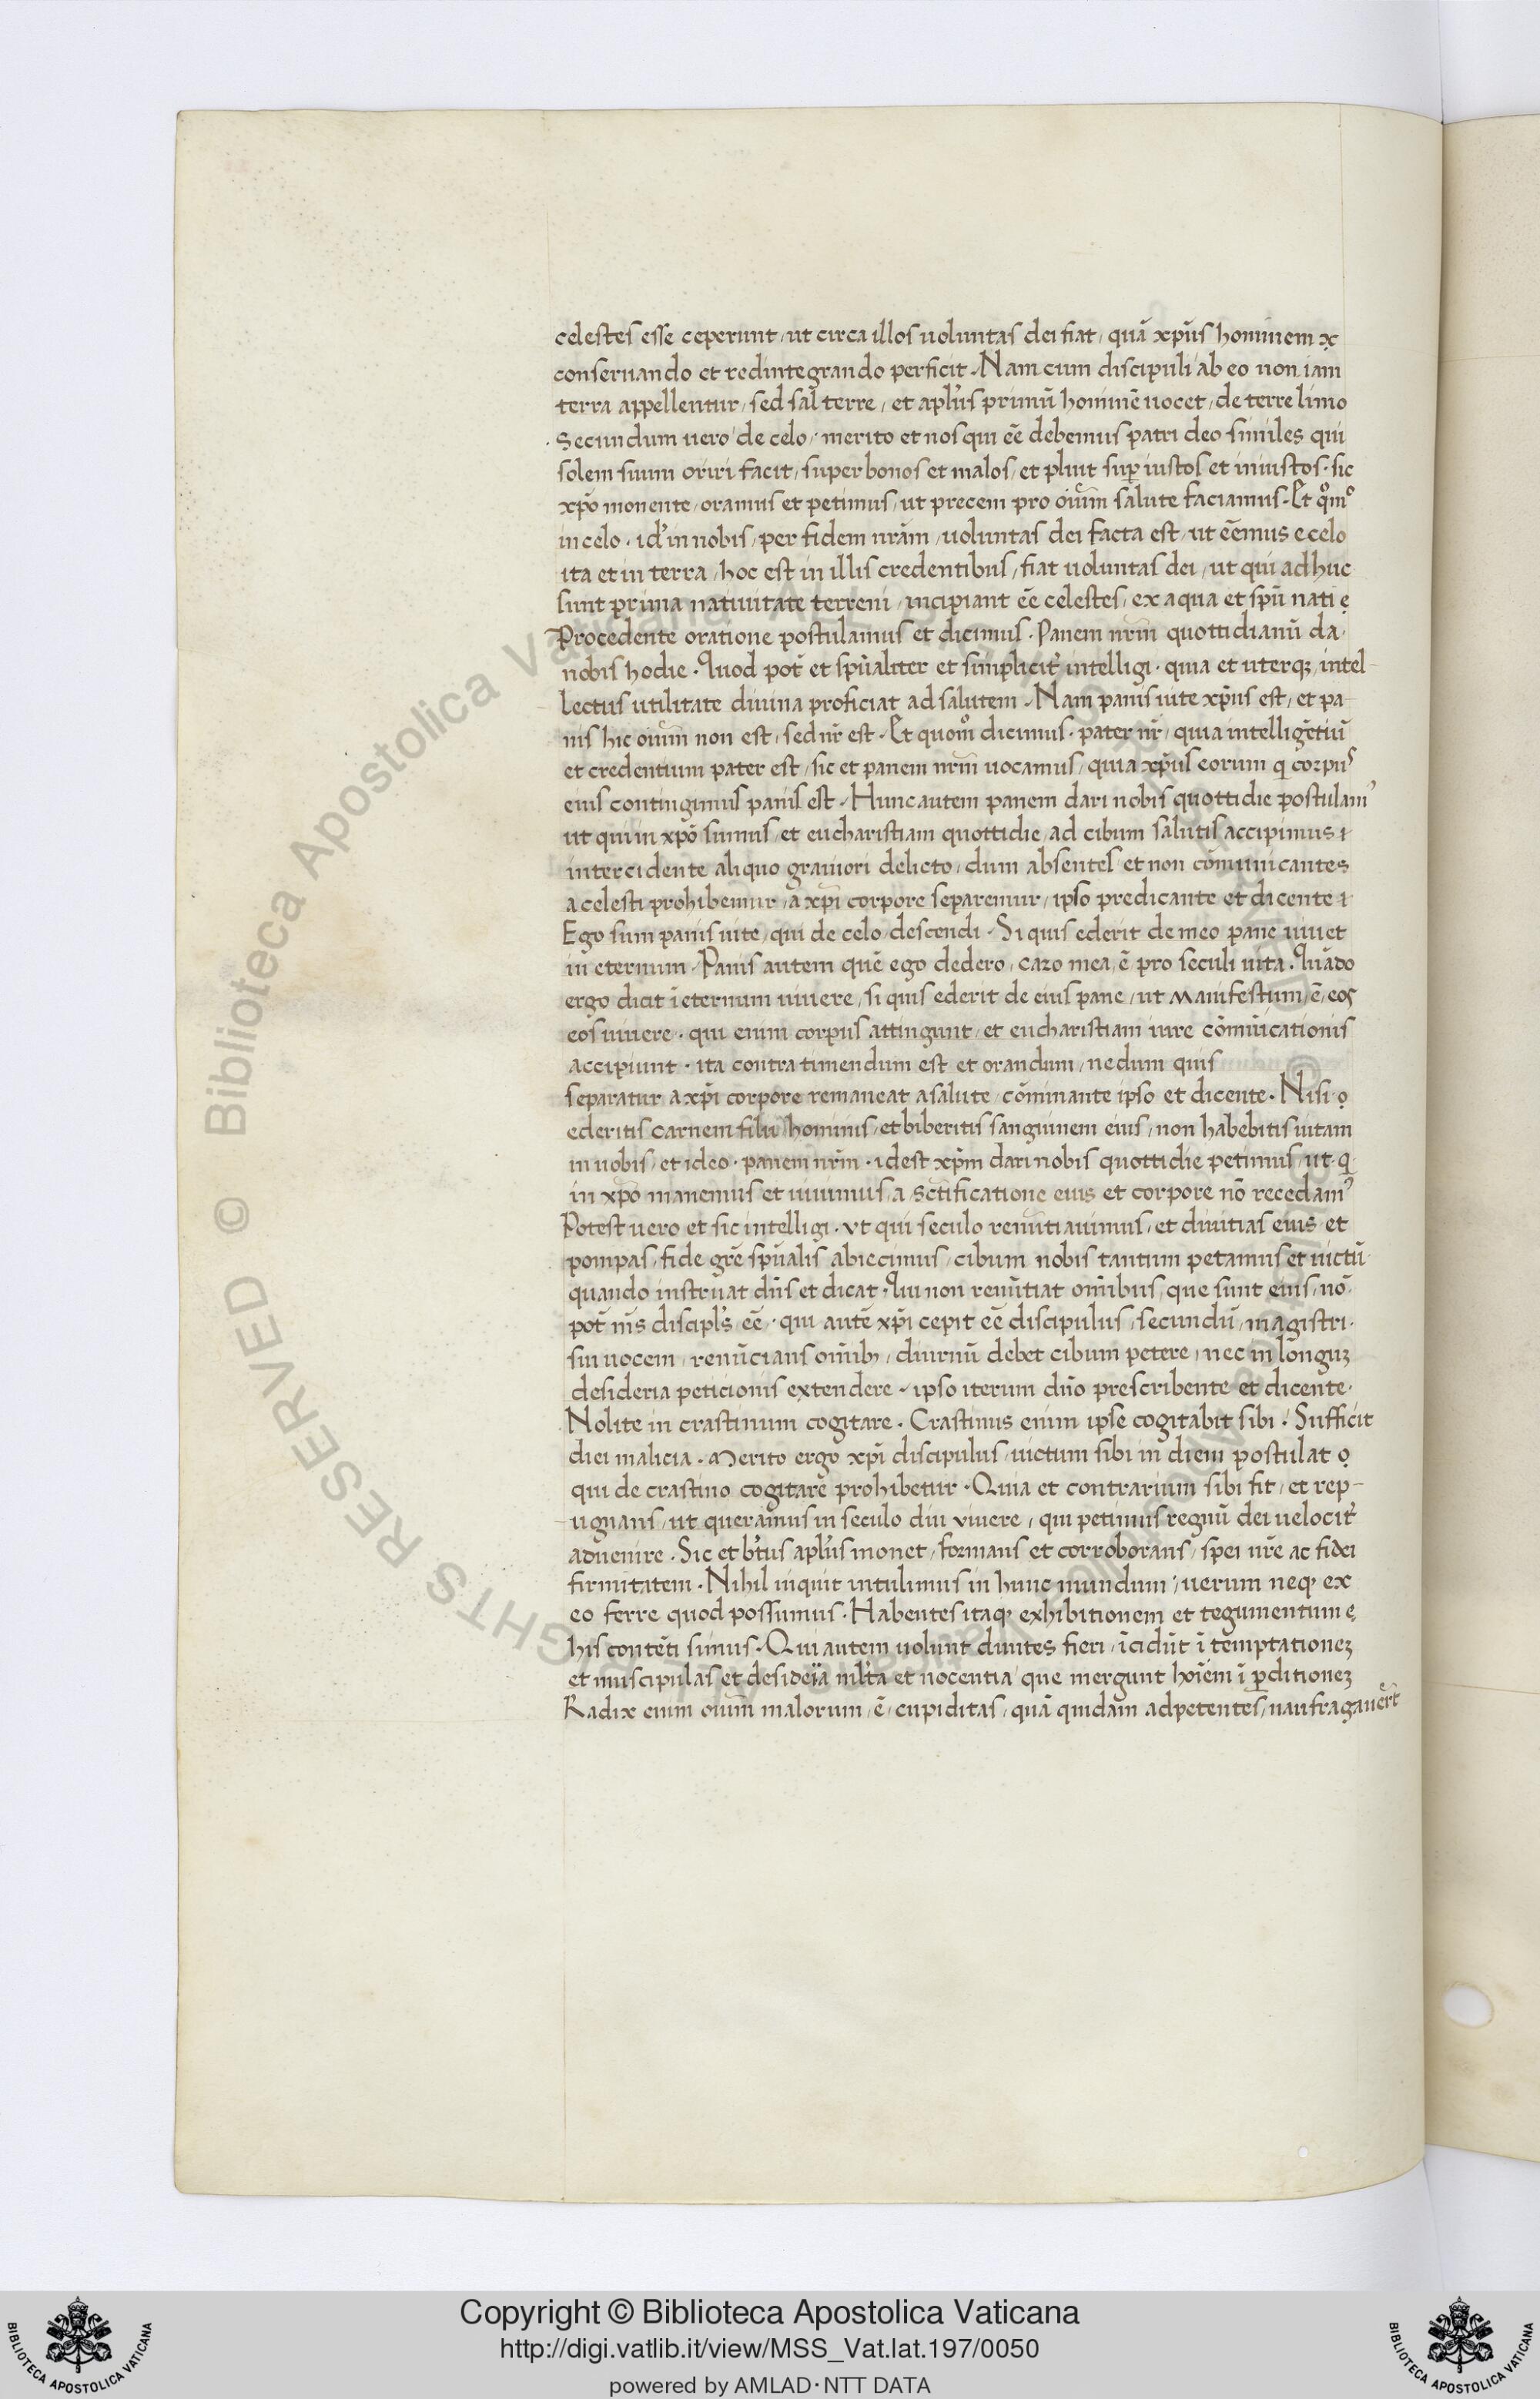 celestes esse ceperunt, ut circa illos uoluntas dei fiat, quā xp̄us hominem x̣
conseruando et redintegrando perficit. Nam cum discipuli ab eo non iam
terra appellentur, sed sal terre, et apl̄us primū hominē uocet, de terre limo
Secundum uero de celo, merito et nos qui eē debemus patri deo similes qui
solem suum oriri facit, super bonos et malos, et pluit sup̄ iustos et iniustos. sic
xp̄o monente, oramus et petimus, ut precem pro oīum salute faciamus. Et qͦmͦ
in celo. id' in nobis, per fidem nrām, uoluntas dei facta est, ut eēmus e celo
ita et in terra, hoc est in illis credentibus, fiat uoluntas dei, ut qui adhuc
sunt prima natiuitate terreni, incipiant eē celestes, ex aqua et spū nati ẹ
Procedente oratione postulamus et dicimus. Panem nrm̄ quottidianū da.
nobis hodie. Quod pot̄ et spūaliter et simplicit̄ intelligi. quia et uterqꝫ intel-
lectus utilitate diuina proficiat ad salutem. Nam panis uite xp̄us est, et pa-
nis hic oīum non est, sed nr̄ est. Et quomͦ dicimus. pater nr̄, quia intelligētiū
et credentium pater est, sic et panem nrm̄ uocamus, quia xp̄us eorum q corpus
eius contingimus panis est. Hunc autem panem dari nobis quottidie postulam'
ut qui in xp̄o sumus, et eucharistiam quottidie, ad cibum salutis accipimus i
intercidente aliquo grauiori delicto, dum absentes et non cōmunicantes
a celesti prohibemur, a xp̄i corpore separemur, ipso predicante et dicente i
Ego sum panis uite, qui de celo descendi. Si quis ederit de meo pane uiuet
in eternum. Panis autem quē ego dedero, caro mea, ē pro seculi uita. Quādo
ergo dicit ī eternum uiuere, si quis ederit de eius pane, ut manifestum, ē, eos
eos uiuere. qui enim corpus attingunt, et eucharistiam iure cōmūicationis
accipiunt. ita contra timendum est et orandum, ne dum quis
separatur a xp̄i corpore remaneat a salute, cōminante ipso et dicente. Nisi ọ
ederitis carnem filii hominis, et biberitis sanguinem eius, non habebitis uitam
in uobis, et ideo. panem nrm̄. idest xp̄m dari nobis quottidie petimus, ut. q
in xp̄o manemus et uiuimus, a sctīficatione eius et corpore nō recedam'
Potest uero et sic intelligi. ut qui seculo renūtiauimus, et diuitias eius et
pompas, fide grē spūalis abiecimus, cibum nobis tantum petamus et uictū
quando instruat dn̄s et dicat. Qui non renūtiat omībus, que sunt eius, nō
pot̄ m̄s discipl's eē. qui autē xp̄i cepit eē discipulus, secundū, magistri.
sui uocem, renūcians om̄ibꝫ, diurnū debet cibum petere, nec in longuꝫ
desideria peticionis extendere, ipso iterum dn̄o prescribente et dicente.
Nolite in crastinum cogitare. Crastinus enim ipse cogitabit sibi. Sufficit
diei malicia. Merito ergo xp̄i discipulus, uictum sibi in diem postulat ọ
qui de crastino cogitare prohibetur. Quia et contrarium sibi fit, et rep-
ugnans, ut queramus in seculo diu viuere, qui petimus regnū dei uelocit̄
aduenire. Sic et b̄tus apl̄us monet, formans et corroborans, spei nrē ac fidei
firmitatem. Nihil inquit intulimus in hunc mundum, uerum neqꝫ ex
eo ferre quod possumus. Habentes itaqꝫ exhibitionem et tegumentum ẹ
his contēti simus. Qui autem uolunt diuites fieri, īcidūt ī temptationeꝫ
et muscipulas et desideïa ml̄ta et nocentia que mergunt hoīem ī ꝑditioneꝫ
Radix enim oīum malorum, ē, cupiditas, quā quidam adpetentes, naufragauer̄t
Copyright © Biblioteca Apostolica Vaticana
http://digi.vatlib.it/view/MSS_Vat.lat.197/0050
powered by AMLAD·NTT DATA